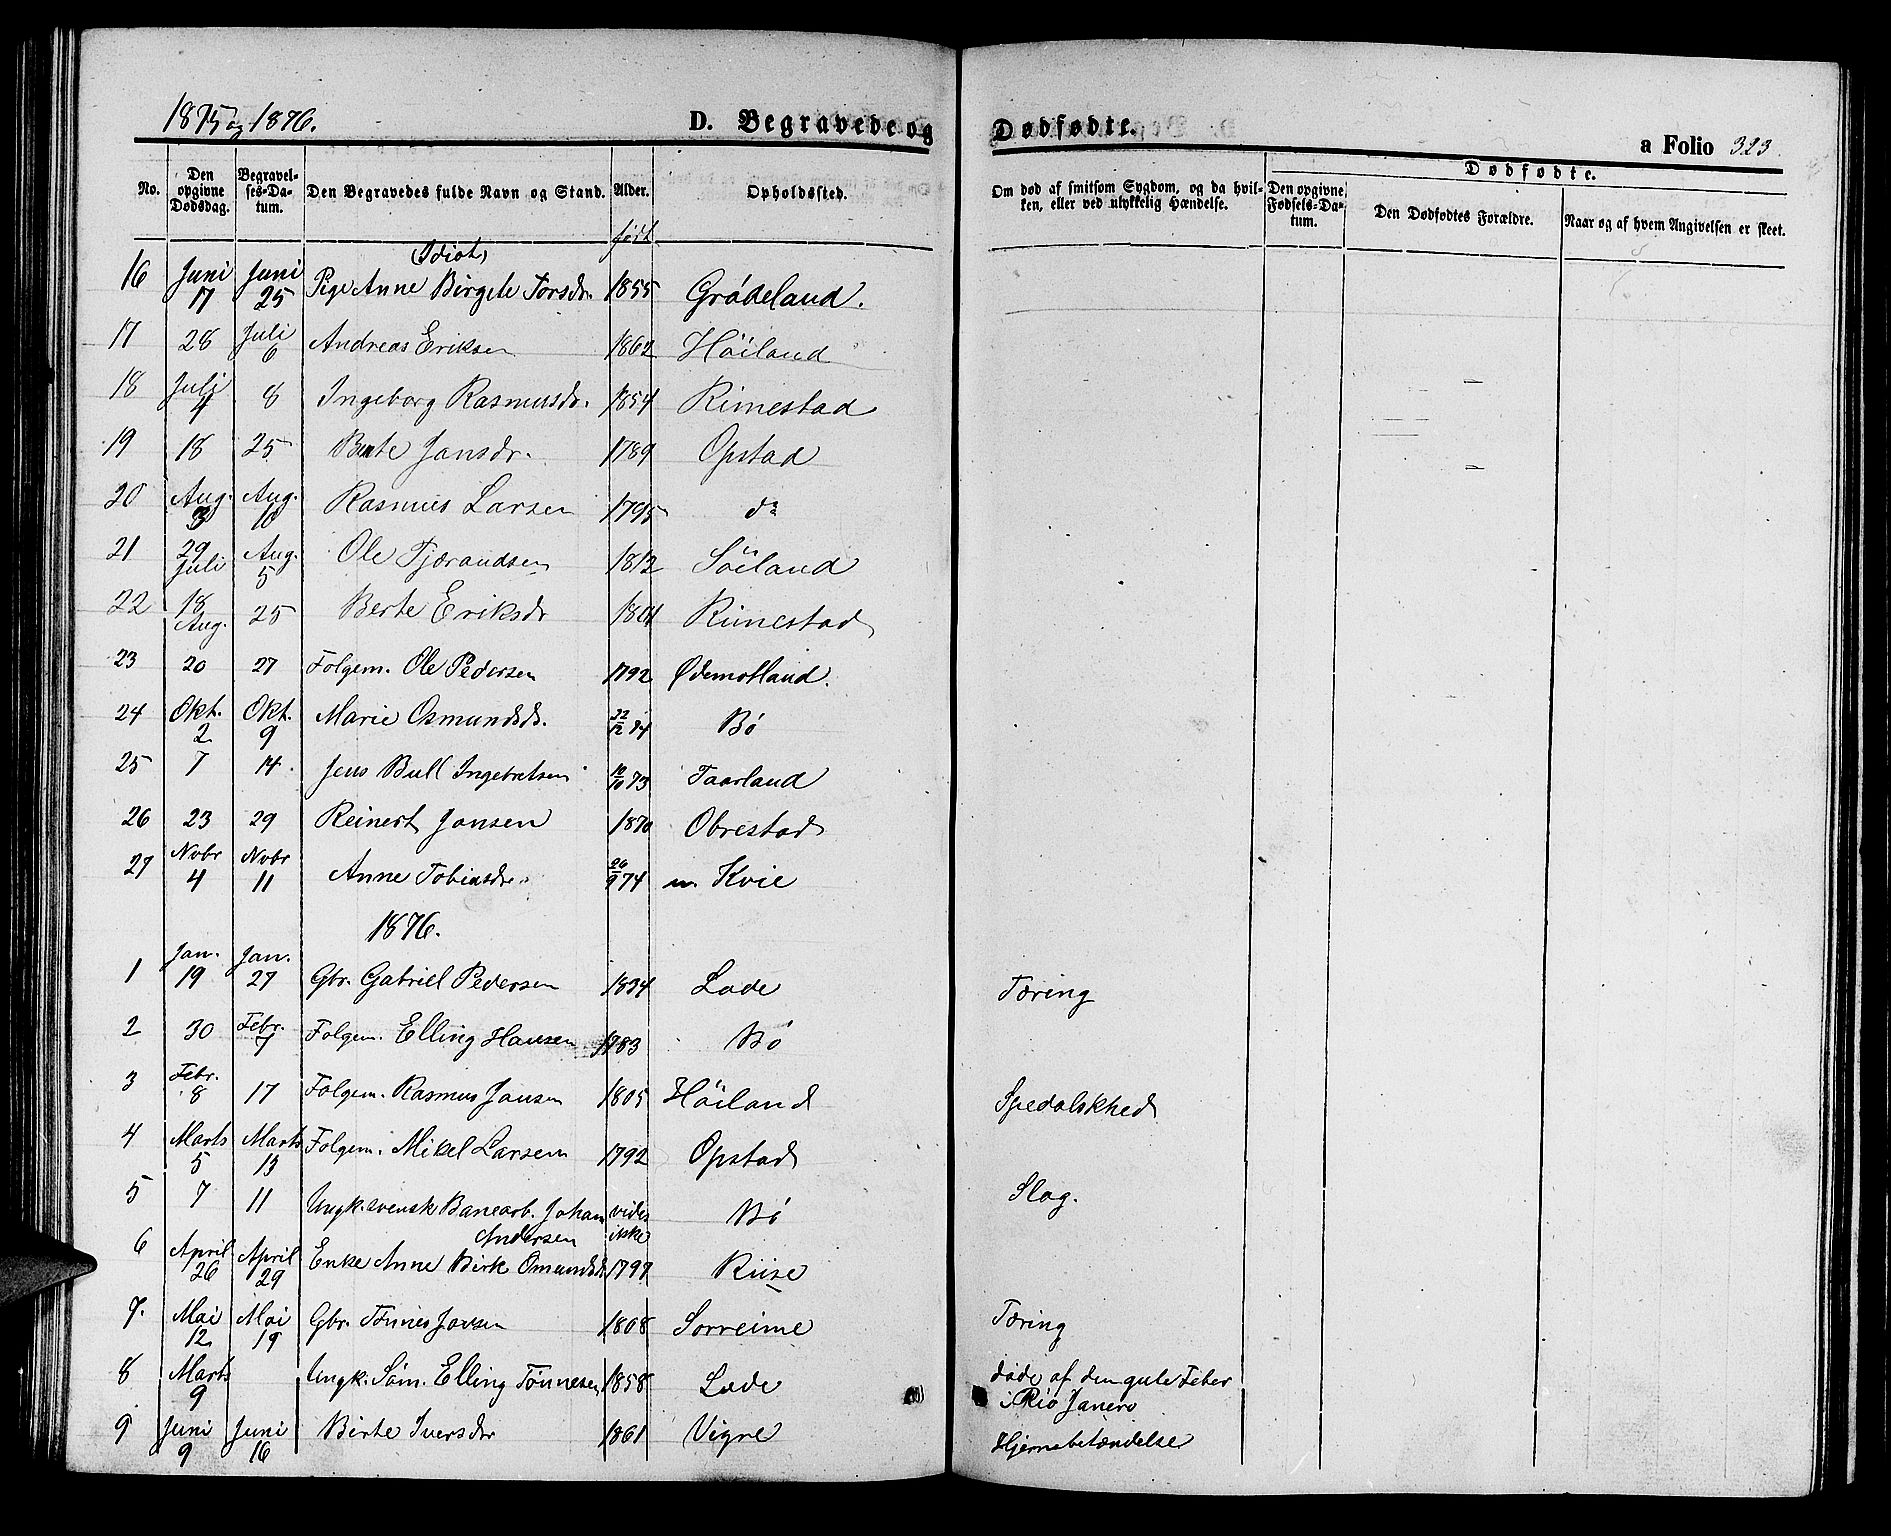 1875 og 1876.
D. Begravede og Dødfødte.
a Folio 323.
No. Den opgivne Dødsdag. Begravelses-Datum. Den Begravedes fulde Navn og Stand. Alder. Opholdssted. Om død af smitsom Sygdom, og da hvilken, eller ved ulykkelig Hændelse. Den opgivne Fødsels-Datum. Dødfødte. Den Dødfødtes Forældre. Naar og af hvem Angivelsen er skeet.
født
(Idiot)
16 Juni 17 Juni 25 Pige Anne Birgite Torsdr. 1855 Grødeland.
17 28 Juli 6 Andreas Eriksen 1862 Höiland
18 Juli 4 8 Ingeborg Rasmusdr. 1854 Rimestad
19 18 25 Berte Jansdr. 1789 Opstad
20 Aug. 3 Aug. 10 Rasmus Larsen 1795 do
21 29 Juli Aug. 5 Ole Tjærandsen 1812 Söiland
22 18 Aug. 25 Berte Eriksdr 1801 Rimestad
23 20 27 Folgem. Ole Pedersen 1792 Ødemotland.
24 Okt. 2 Okt. 9 Marie Osmundsdr. 22/12 74 Bø
25 7 14 Jens Bull Ingebretsen 10/10 73 Taarland
26 23 29 Reinert Jansen 1870 Obrestad
27 Novbr 4 Novbr 11 Anne Tobiasdr. 26/9 74 n. Kvie
1876.
1 Jan. 19 Jan. 27 Gbr. Gabriel Pedersen 1834 Lode Tæring
2 30 Febr. 7 Folgem. Elling Hansen 1783 Bø
3 Febr. 8 17 Folgem. Rasmus Jansen 1805 Höiland Spedalskhed
4 Marts 5 Marts 13 Folgem. Mikel Larsen 1792 Opstad
5 7 11 Ungk. svensk Banearb. Johan Andersen vides ikke Bø Slag.
6 April 26 April 29 Enke Anne Birk Omundsdr 1797 Riise
7. Mai 12 Mai 19 Gbr. Tønnes Jansen 1808 Sorreime Tæring
8 Marts 9 Ungk. Søm. Elling Tönnesen 1858 Lode døde af den gule Feber
i Rio Janero
9 Juni 9 Juni 16 Birte Iversdr 1861 Vigre Hjernebetændelse